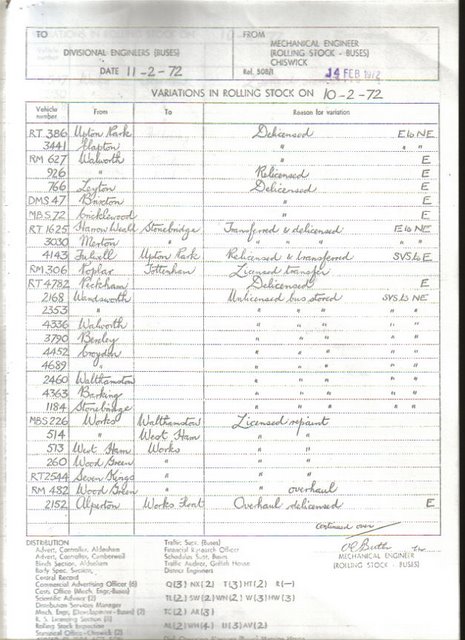 TO
FROM
DIVISIONAL ENGINEERS (BUSES)
MECHANICAL ENGINEER
(ROLLING STOCK - BUSES)
CHISWICK
DATE 11-2-72
Ref. 508/1
14 FEB 1972
VARIATIONS IN ROLLING STOCK ON 10-2-72
Vehicle number From To Reason for variation
RT 386 Upton Park Delicensed E to NE
3441 Clapton " " "
RM 627 Walworth " E
926 " Relicensed E
766 Leyton Delicensed E
DMS 47 Brixton " E
MBS 72 Cricklewood " E
RT 1625 Harrow Weald Stonebridge Transferred & delicensed E to NE
3030 Merton " " " " " "
4143 Fulwell Upton Park Relicensed & transferred SVS to E
RM 306 Poplar Tottenham Licensed transfer
RT 4782 Peckham Delicensed E
2168 Wandsworth Unlicensed bus stored SVS to NE
2353 " " " " " "
4336 Walworth " " " " "
3790 Bexley " " " " "
4452 Croydon " " " " "
4689 " " " " " "
2460 Walthamstow " " " " "
4363 Barking " " " " "
1184 Stonebridge " " " " "
MBS 226 Works Walthamstow Licensed repaint
514 " West Ham " "
513 West Ham Works " "
260 Wood Green " " "
RT 2544 Seven Kings " " "
RM 482 Wood Green " " overhaul
2152 Alperton Works Float Overhaul delicensed E
continued over
DISTRIBUTION
Advert. Controller, Aldenham
Advert. Controller, Camberwell
Blinds Section, Aldenham
Early Spec. Section,
Central Record
Commercial Advertising Officer (6)
Costs Office (Mech. Engr.-Buses)
Scientific Advisor (2)
Distribution Services Manager
Mech. Engr. (Development - Buses) (2)
R. S. Licensing Section (1)
Rolling Stock Inspection
Statistical Office - Chiswick (2)
Traffic Supt. (Buses)
Financial Research Officer
Schedules Supt. Buses
Traffic Auditor, Griffith House
District Engineers
Q(3) NX(2) T(3) HT(2) R(-)
TL(2) SW(2) WN(2) W(3) HW(3)
TC(2) AR(3)
AL(2) WH(4) U(3) AV(2)
MECHANICAL ENGINEER
(ROLLING STOCK - BUSES)